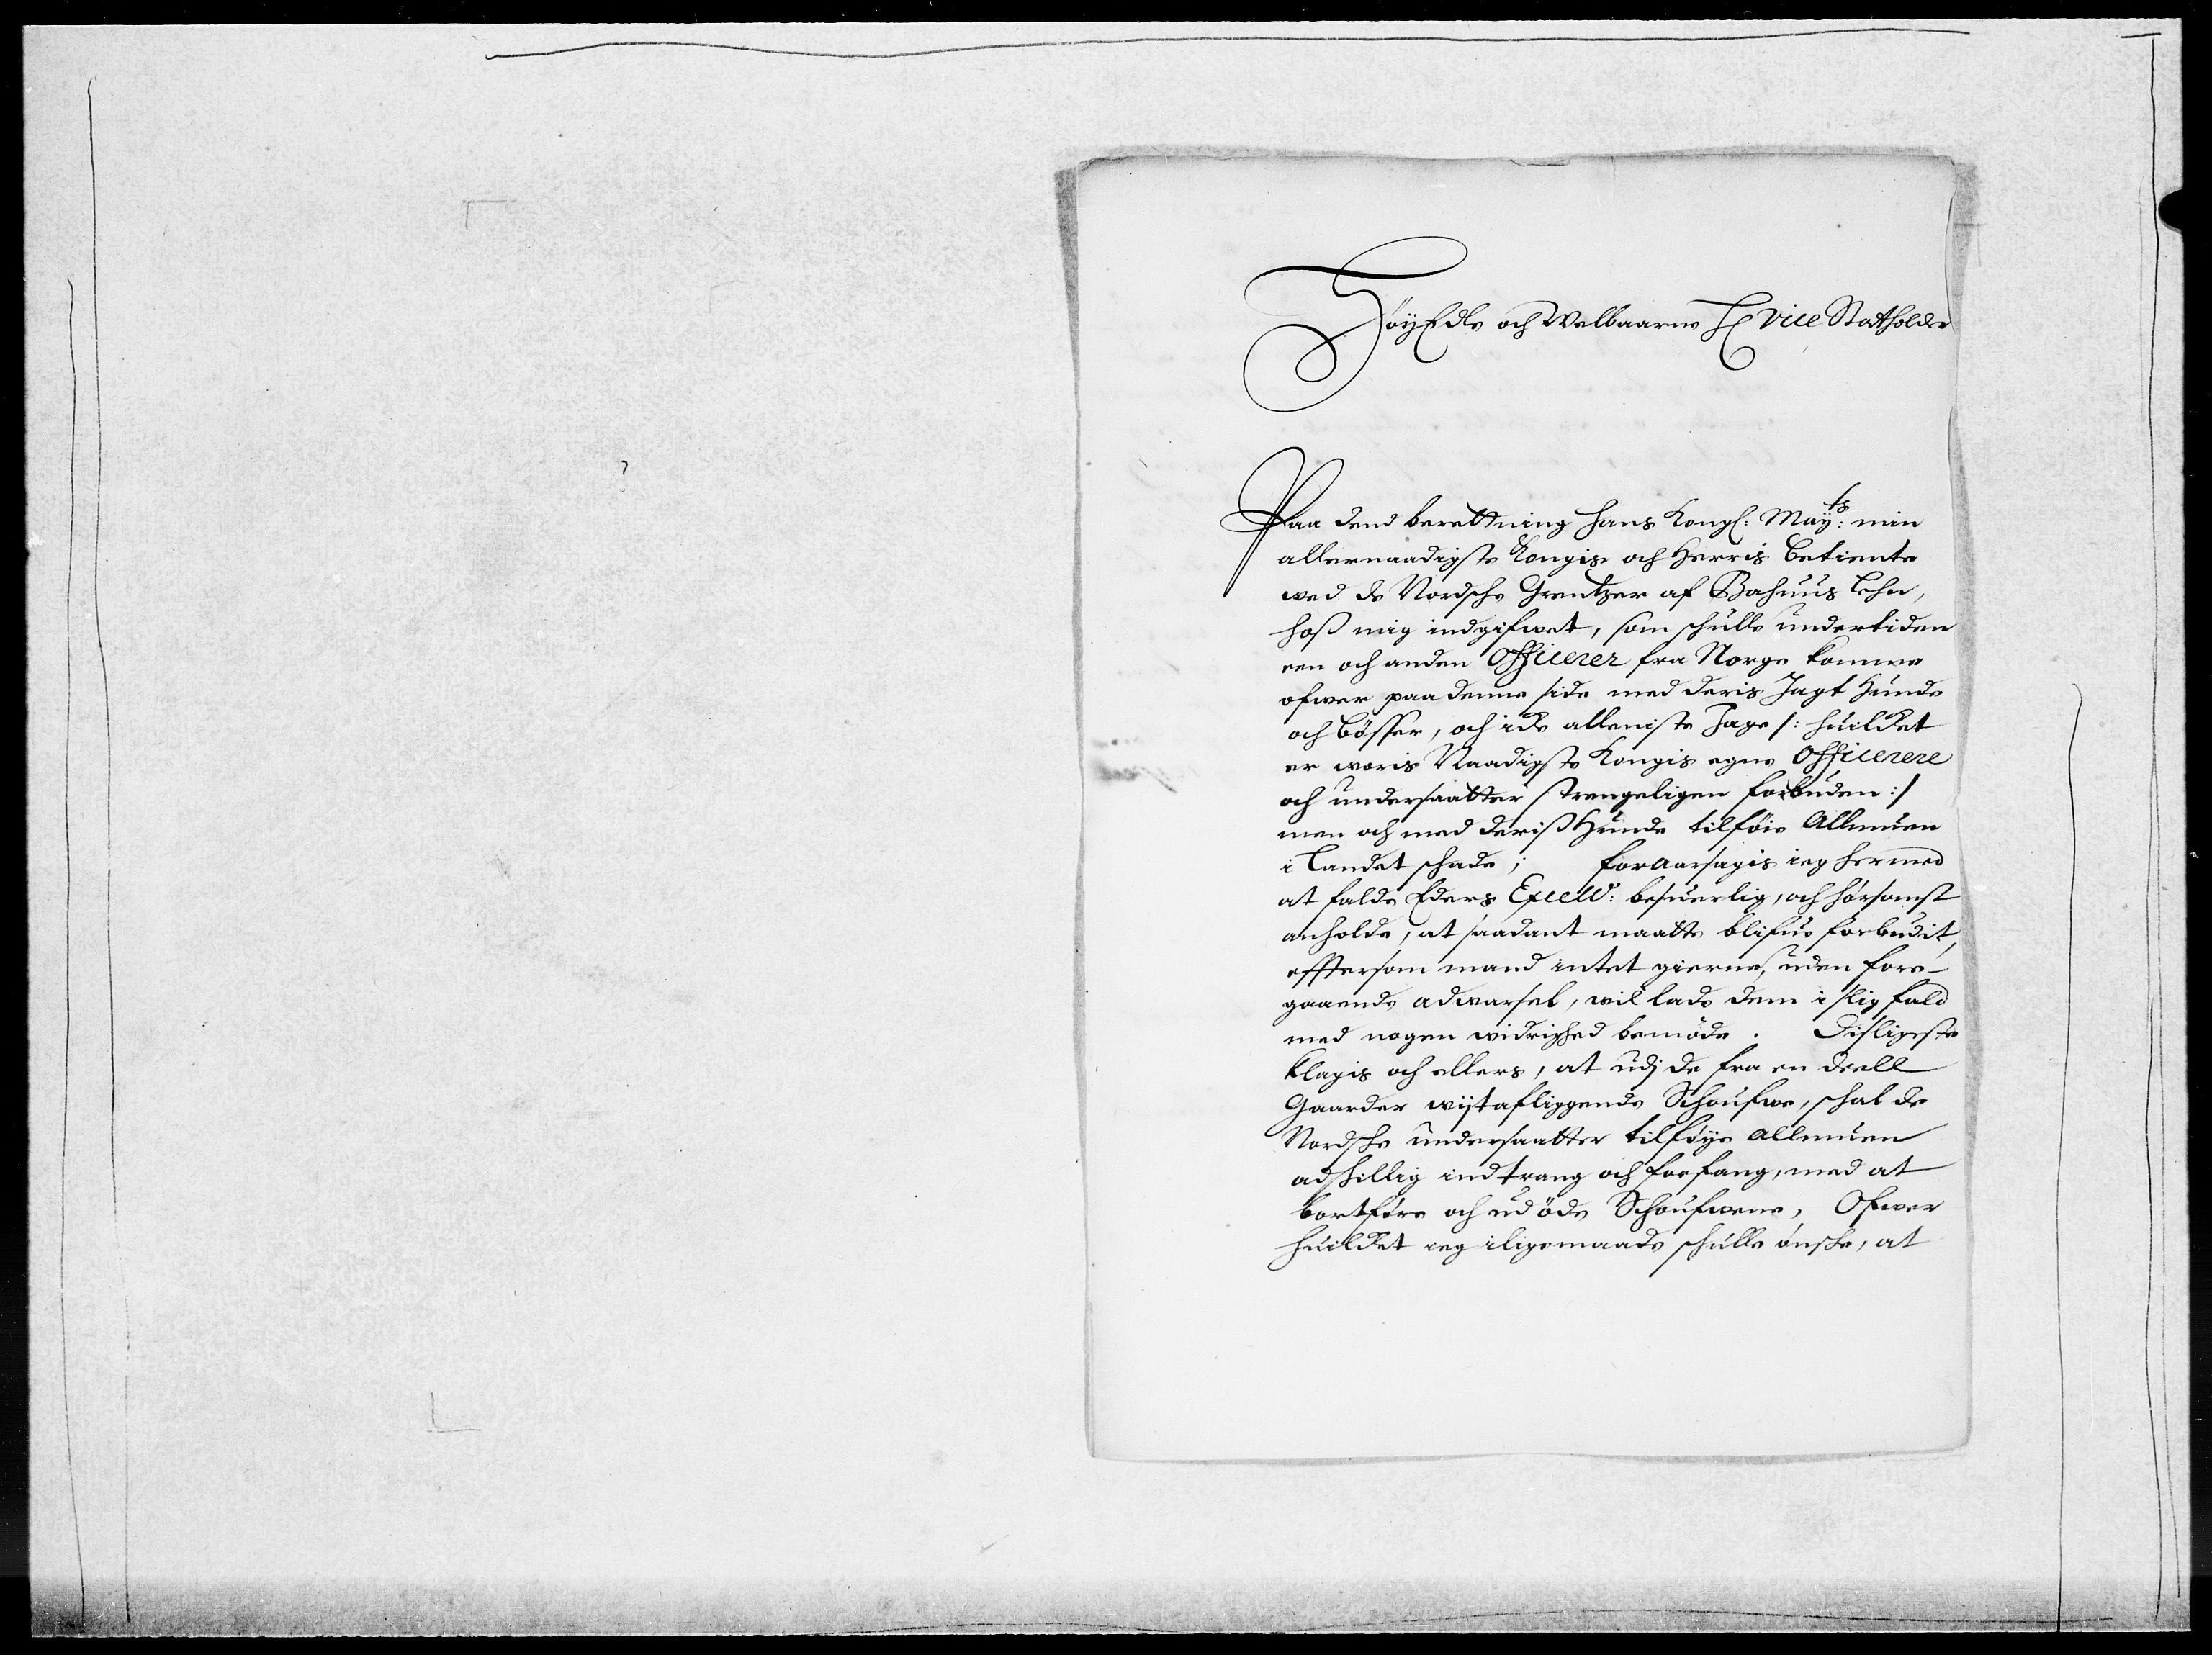 HöyEdle och Welbaarne H. Vice Statholder
Paa dend berettning hans Kongl: May:ts min
allernaadigste Kongis och Herris betiente
wed de Nordsche Grentzer af Bahuus lehn,
hoss mig indgifwet, som schulle undertiden
een och anden Officerer fra Norge komme
ofwer paa denne side med deris Jagt Hunde
och bösser, och icke alleniste Jage /: huilcket
er woris Naadigste Kongis egne Officerere
och undersaatter strengeligen forbuden :/
men och med deriss Hunde tilföie Allmuen
i landet schade; foraarsagis ieg hermed
at falde Eders Excell: besuerlig, och hörsomst
anholde, at saadant maatte blifue forbudit,
efftersom mand intet gierne, uden fore-
gaaende adwarsel, wil lade dem i slig fald
med nogen widrighed bemöde. Disligeste
klagis och ellers, at udj de fra en deell
Gaarder wijt afliggende Schoufwe, schal de
Nordsche undersaatter tilföye allmuen
adskillig indtrang och forfang, med at
bortföre och udöde Schoufwene, Ofwer
huilcket ieg iligemaade schulle önsche, at